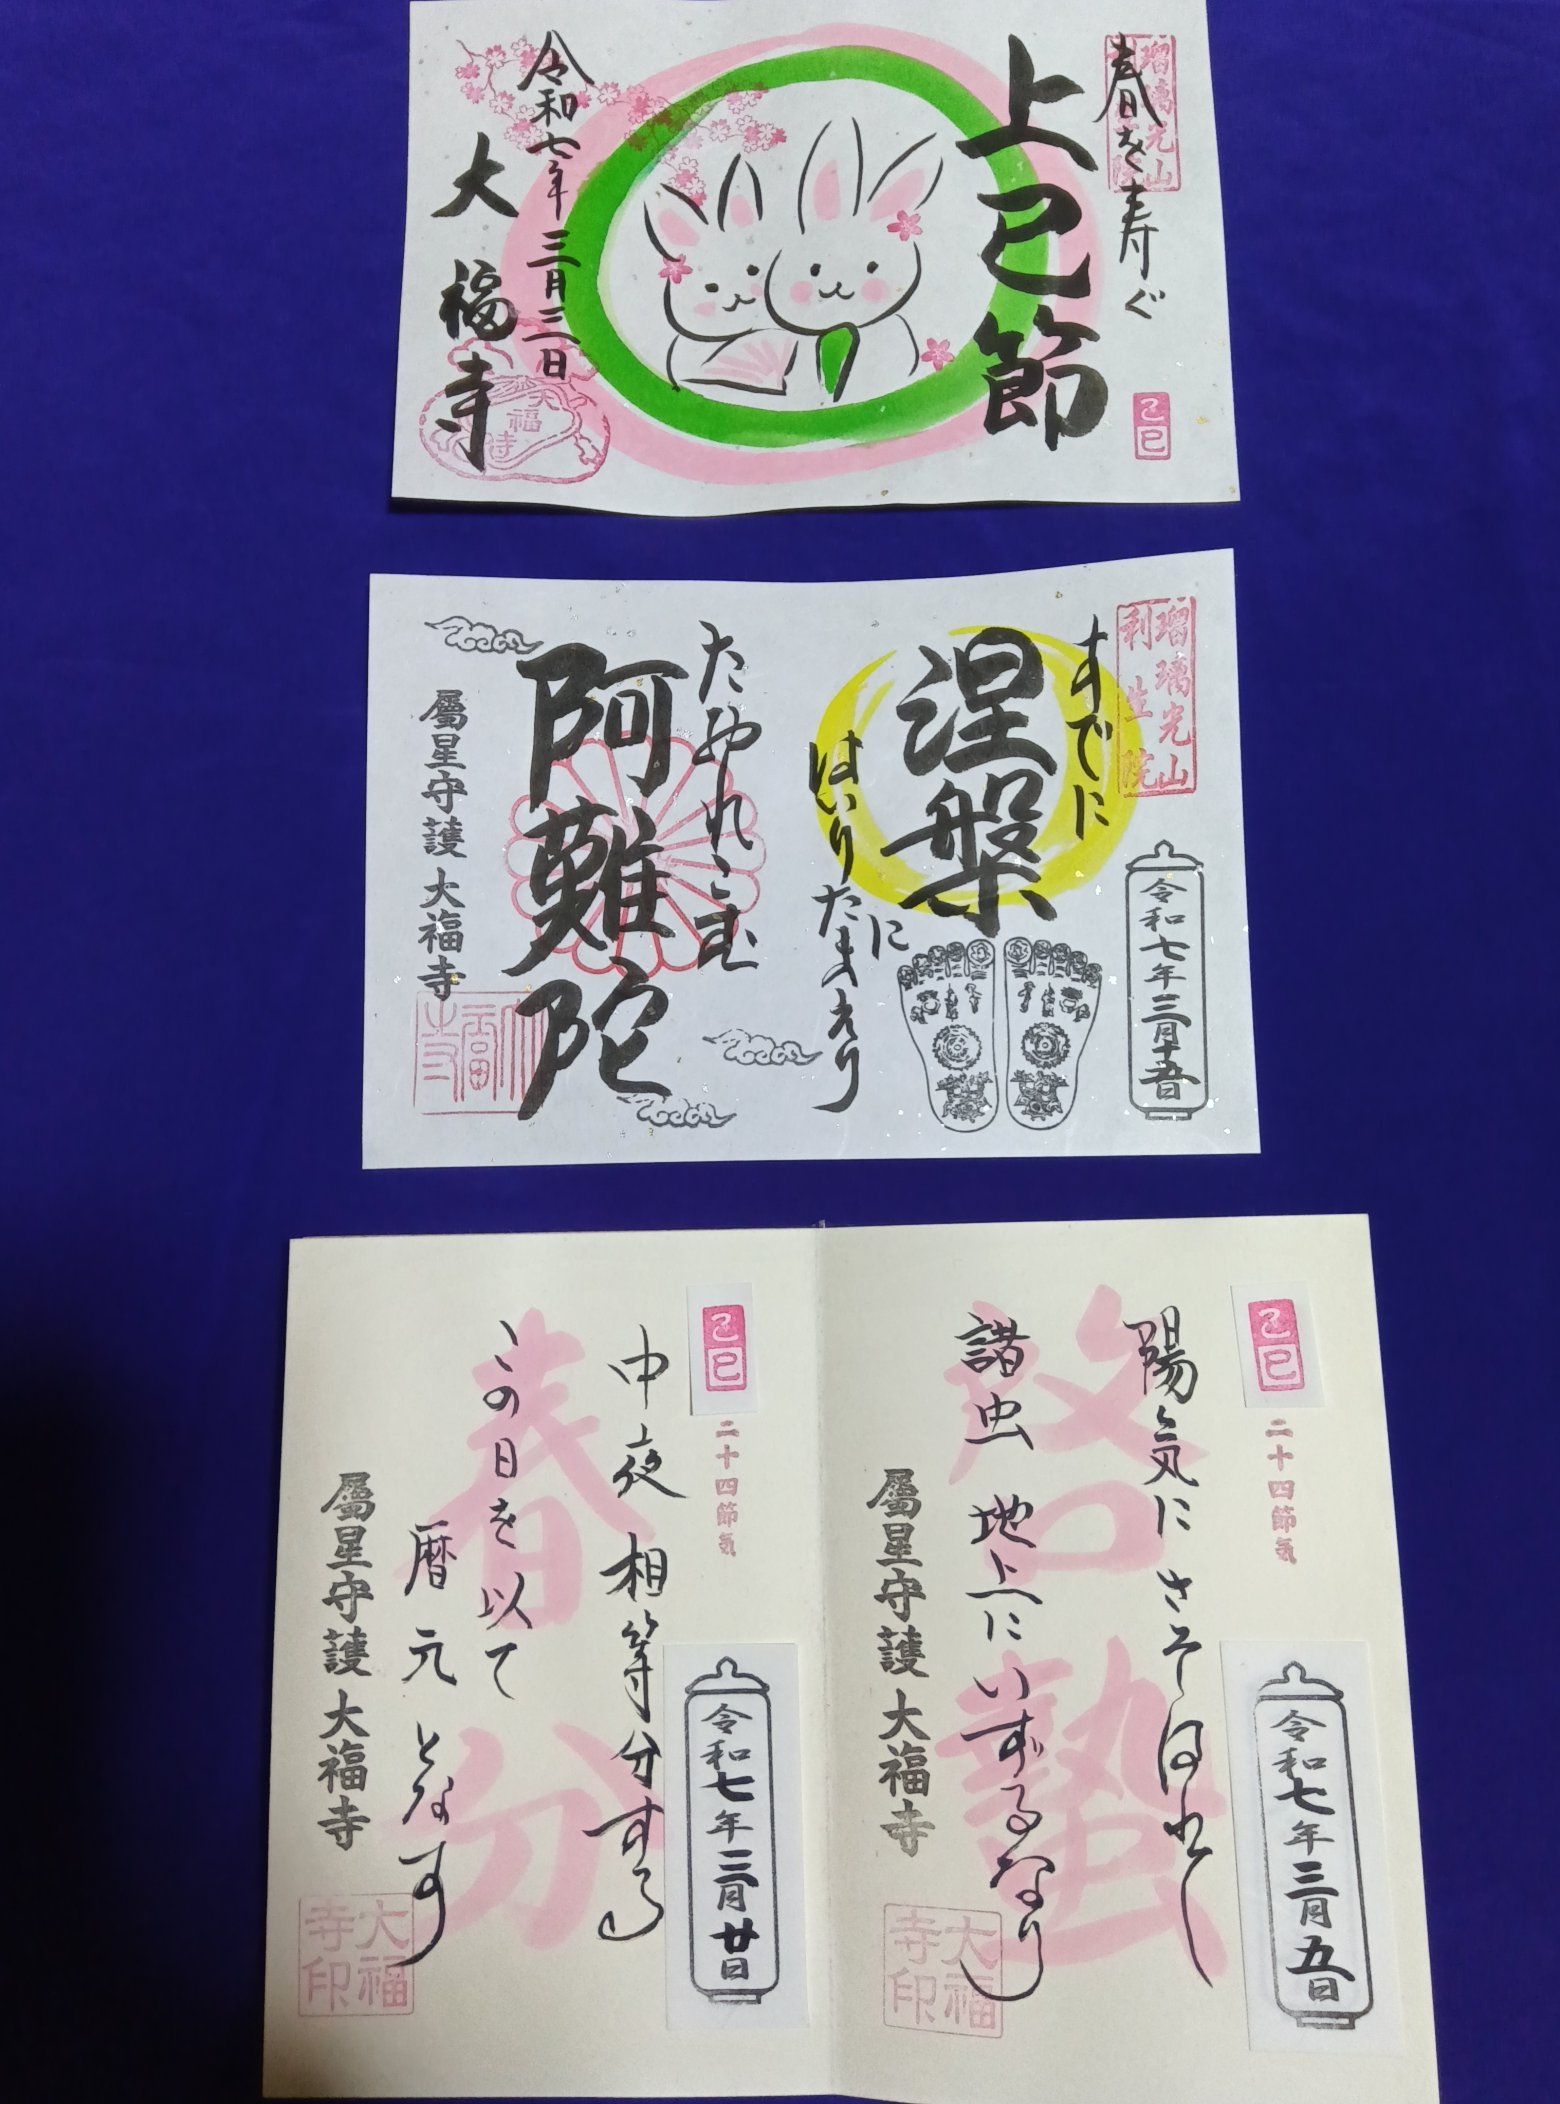 春を寿ぐ
瑠璃光山
上巳節
己巳
令和七年三月三日
大福寺
大福寺
瑠璃光山
利生院
令和七年三月十五日
すでに
涅槃に
はいりたまえり
阿難陀
屬星守護 大福寺
大福寺
己巳
二十四節気
令和七年三月五日
啓蟄
陽気に さそはれし
諸虫 地上に いずるなり
屬星守護 大福寺
大福寺印
己巳
二十四節気
令和七年三月廿日
春分
中夜 相等分する
この日を以て
暦元となす
屬星守護 大福寺
大福寺印